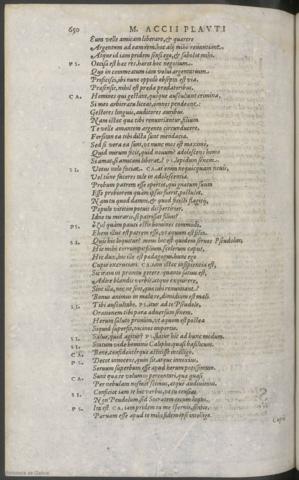 650 M. ACCII PLAVTI
Eum velle amicam liberare, & quærere
Argentum ad eam rem. hoc alij mihi renuntiant.
Atque id iam pridem sensi ego, & subolet mihi.
PS. Occisa est hæc res, hæret hoc negotium.
Quo in commeatum iam volui argentarium
Proficisci, ibi nunc oppido obsepta est via.
Præsensit, nihil est præda prædatoribus.
CA. Homines qui gestant, quique auscultant crimina,
Si meo arbitratu liceat, omnes pendeant:
Gestores linguis, auditores auribus.
Nam istæc quæ tibi renuntiantur, filium
Te velle amantem argento circunducere,
Forsitan ea tibi dicta sunt mendacia.
Sed si vera ea sunt, ut nunc mos est maxime,
Quid mirum fecit, quid novum? adolescens homo
Si amat, si amicam liberat? PS. lepidum senem.
SI. Vetus nolo faciat. CA. at enim nequicquam nevis,
Vel tu ne faceres tale in adolescentia.
Probum patrem esse oportet, qui gnatum suum
Esse probiorem quàm ipse fuerit, postulat.
Nam tu quod damni, & quod fecisti flagitij,
Populo viritim potuit dispertirier.
Idne tu mirare, si patrissat filius?
PS. quàm pauci estis homines commodi,
Ehem illic est pater, ut æquum est filio.
SI. Quis hic loquitur? meus hic est quidem servus Pseudolus,
Hic mihi corrumpit filium, scelerum caput,
Hic dux, hic ille est pædagogus, hunc ego
Cupio excruciari. CA. iam istæc insipientia est,
Sic iram in promtu gerere. quanto satius est,
Adire blandis verbis, atque exquirere,
Sint illa, nec ne sint, quæ tibi renuntiant?
Bonus animus in mala re, dimidium est mali.
SI. Tibi auscultabo. PS. itur ad te Pseudole,
Orationem tibi para adversum senem.
Herum saluto primum, ut æquum est postea
Siquid superfit, vicinos impertio.
SI. Salve, quid agitur? PS. statur hic ad hunc modum.
SI. Statum vide hominis Callipho quàm basilicum.
CA. Bene, confidenterque astitisse intelligo.
PS. Decet innocens, qui sit, atque innoxius,
Servum superbum esse apud herum potissimum.
CA. Sunt quæ te volumus percontari, quæ quasi
Per nebulam nosmet scimus, atque audivimus.
SI. Conficiet iam te hic verbis, ut tu censeas
Non Pseudolum, sed Socratem tecum loqui.
PS. Ita est. CA. iam pridem tu me spernis, sentio.
Parvam esse apud te mihi fidem ipse intelligo.
Cupis